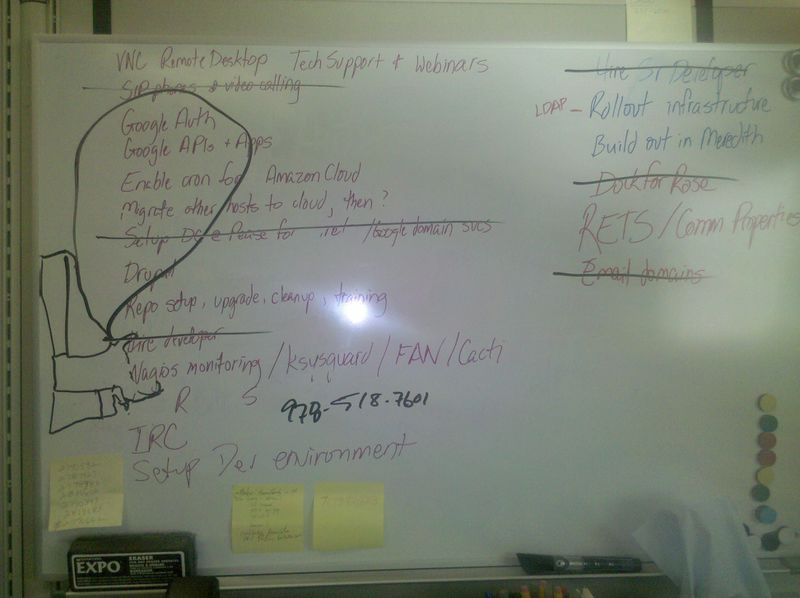 VNC Remote Desktop Tech Support & Webinars
SIP phones & video calling
Google Auth
Google APIs + Apps
Enable cron for Amazon Cloud
Migrate other hosts to cloud, then?
Setup DC @ Pease for .net /Google domain svcs
Drupal
Repo setup, upgrade, cleanup, training
Hire developer
Nagios monitoring /ksysguard/FAN/Cacti
R S
978-518-7601
IRC
Setup Dev environment
Hire Sr Developer
LDAP - Rollout infrastructure
Build out in Meredith
Dock for Rose
RETS/Comm Properties
Email domains
EXPO
ERASER